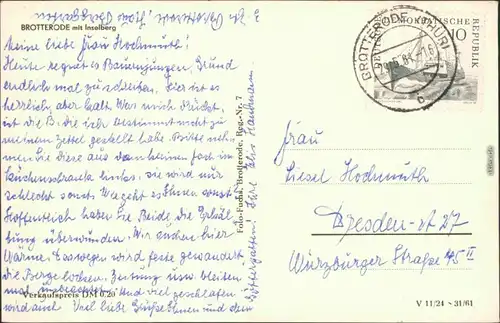 BROTTERODE mit Inselberg
Meine liebe Frau Hochmuth!
Heute regnet es Bauernjungen, Grund
endlich mal zu schreiben. Hier ist es
herrlich, aber kalt. Was mich drückt,
ist die B. die ich bestimmt nicht zu
meinem Zettel gestellt habe. Bitte neh-
men Sie diese aus dem kleinen Fach im
Küchenschrank links, sie wird mir
schlecht sonst. Wie geht es Ihnen sonst
Hoffentlich haben Sie Beide die Erkäl-
tung überwunden. Wir suchen hier
Wärme. Deswegen wird feste gewandert
die Berge locken. Zeitung uns bleiben
mal und viel geschlafen
wird auch Viel liebe Grüße Ihnen und dem
Göttergatten! Ihre
Verkaufspreis DM 0.20
Foto-Fuchs, Brotterode, Rpg.-Nr. 7
DEMOKRATISCHE
REPUBLIK
10
BROTTERODE (THÜR)
c
Frau
Liesel Hochmuth
Dresden-A 27
Würzburger Straße 45 II
V 11/24 - 31/61